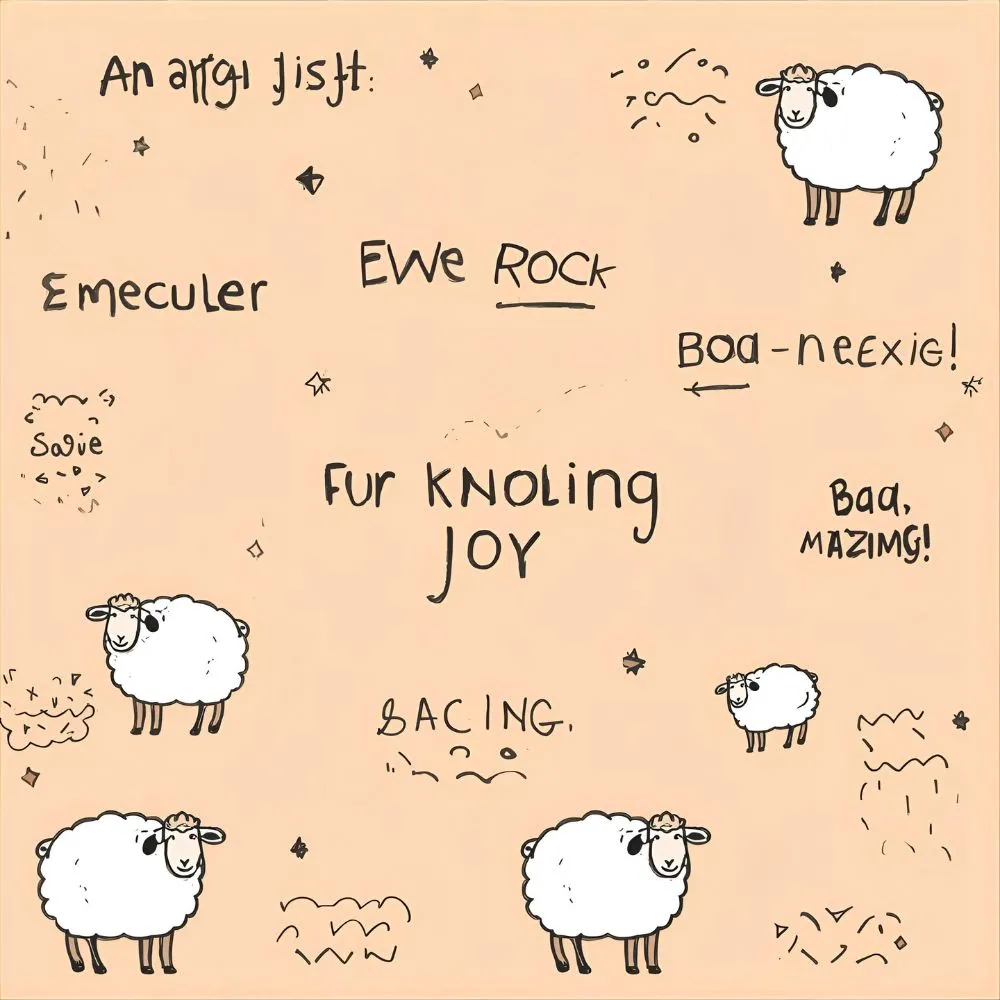 EWe ROCK
Emeculer
Boa-neexiG!
Savie
Fur KNOLing
JOY
Baa,
MAZIMG!
SACING.